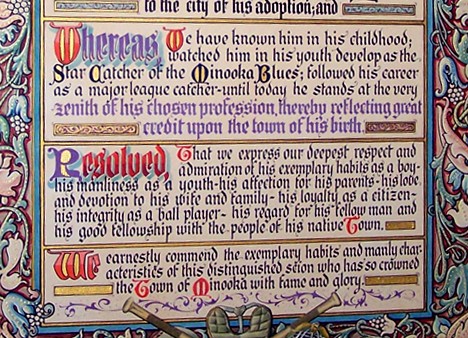 to the city of his adoption; and
Whereas, We have known him in his childhood;
watched him in his youth develop as the
Star Catcher of the Minooka Blues; followed his career
as a major league catcher-until today he stands at the very
zenith of his chosen profession, thereby reflecting great
credit upon the town of his birth.
Resolved, That we express our deepest respect and
admiration of his exemplary habits as a boy-
his manliness as a youth-his affection for his parents-his love
and devotion to his wife and family-his loyalty as a citizen-
his integrity as a ball player-his regard for his fellow man and
his good fellowship with the people of his native Town.
We earnestly commend the exemplary habits and manly char-
acteristics of this distinguished scion who has so crowned
the Town of Minooka with fame and glory.